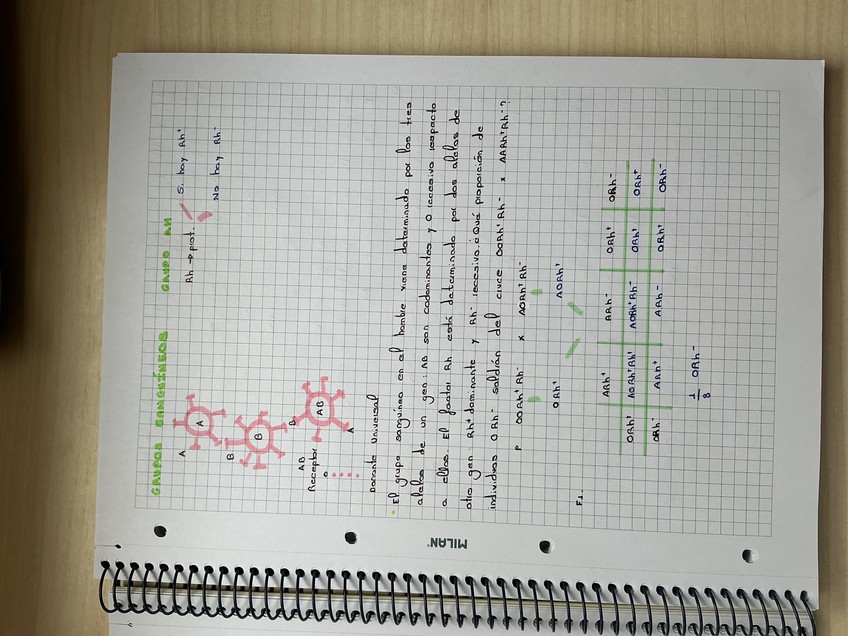 GRUPOS SANGUÍNEOS
GRUPO RH
A
A
B
B
AB
Receptor
O
B
AB
A
Donante Universal
Rh → prot.
Si hay Rh+
No hay Rh-
- El grupo sanguíneo en el hombre viene determinado por los tres
alelos de un gen: AB son codominantes y O recesivo respecto
a ellos. El factor Rh está determinado por dos alelos de
otro gen: Rh+ dominante y Rh- recesivo. ¿Qué proporción de
individuos ORh- saldrán del cruce OORh+Rh- x AARh+Rh-?
P OORh+Rh- x AORh+Rh-
ORh+ AORh+
F1.
ARh+ ARh- ORh+ ORh-
ORh+ AORh+Rh+ AORh+Rh- ORh+ ORh+
ORh- ARh+ ARh- ORh+ ORh-
1/8 ORh-
MILAN